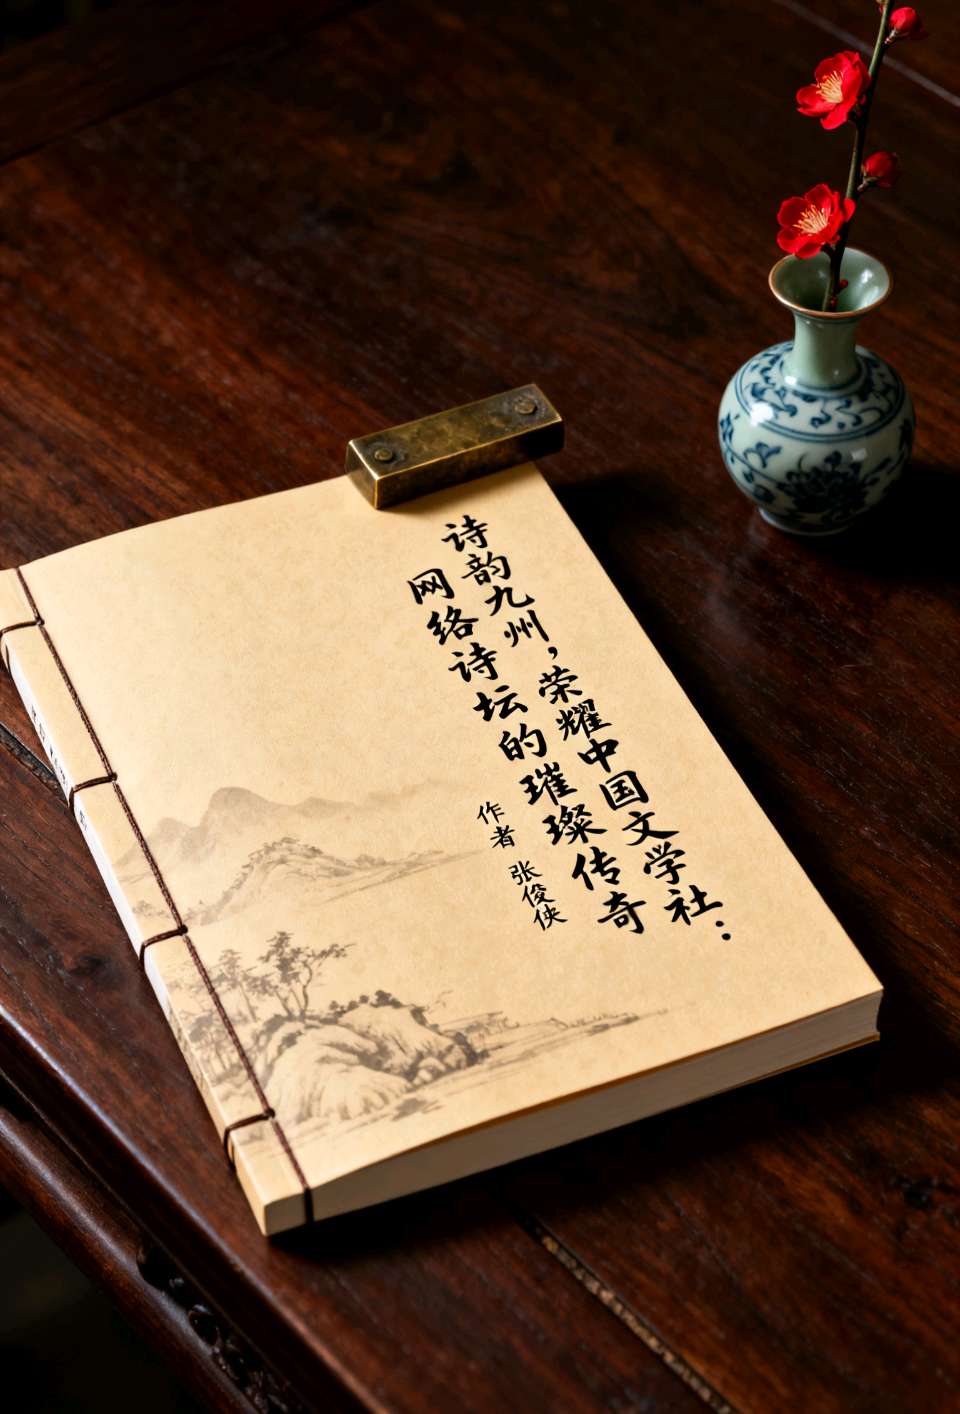 诗韵九州，荣耀中国文学社：
网络诗坛的璀璨传奇
作者 张俊侠